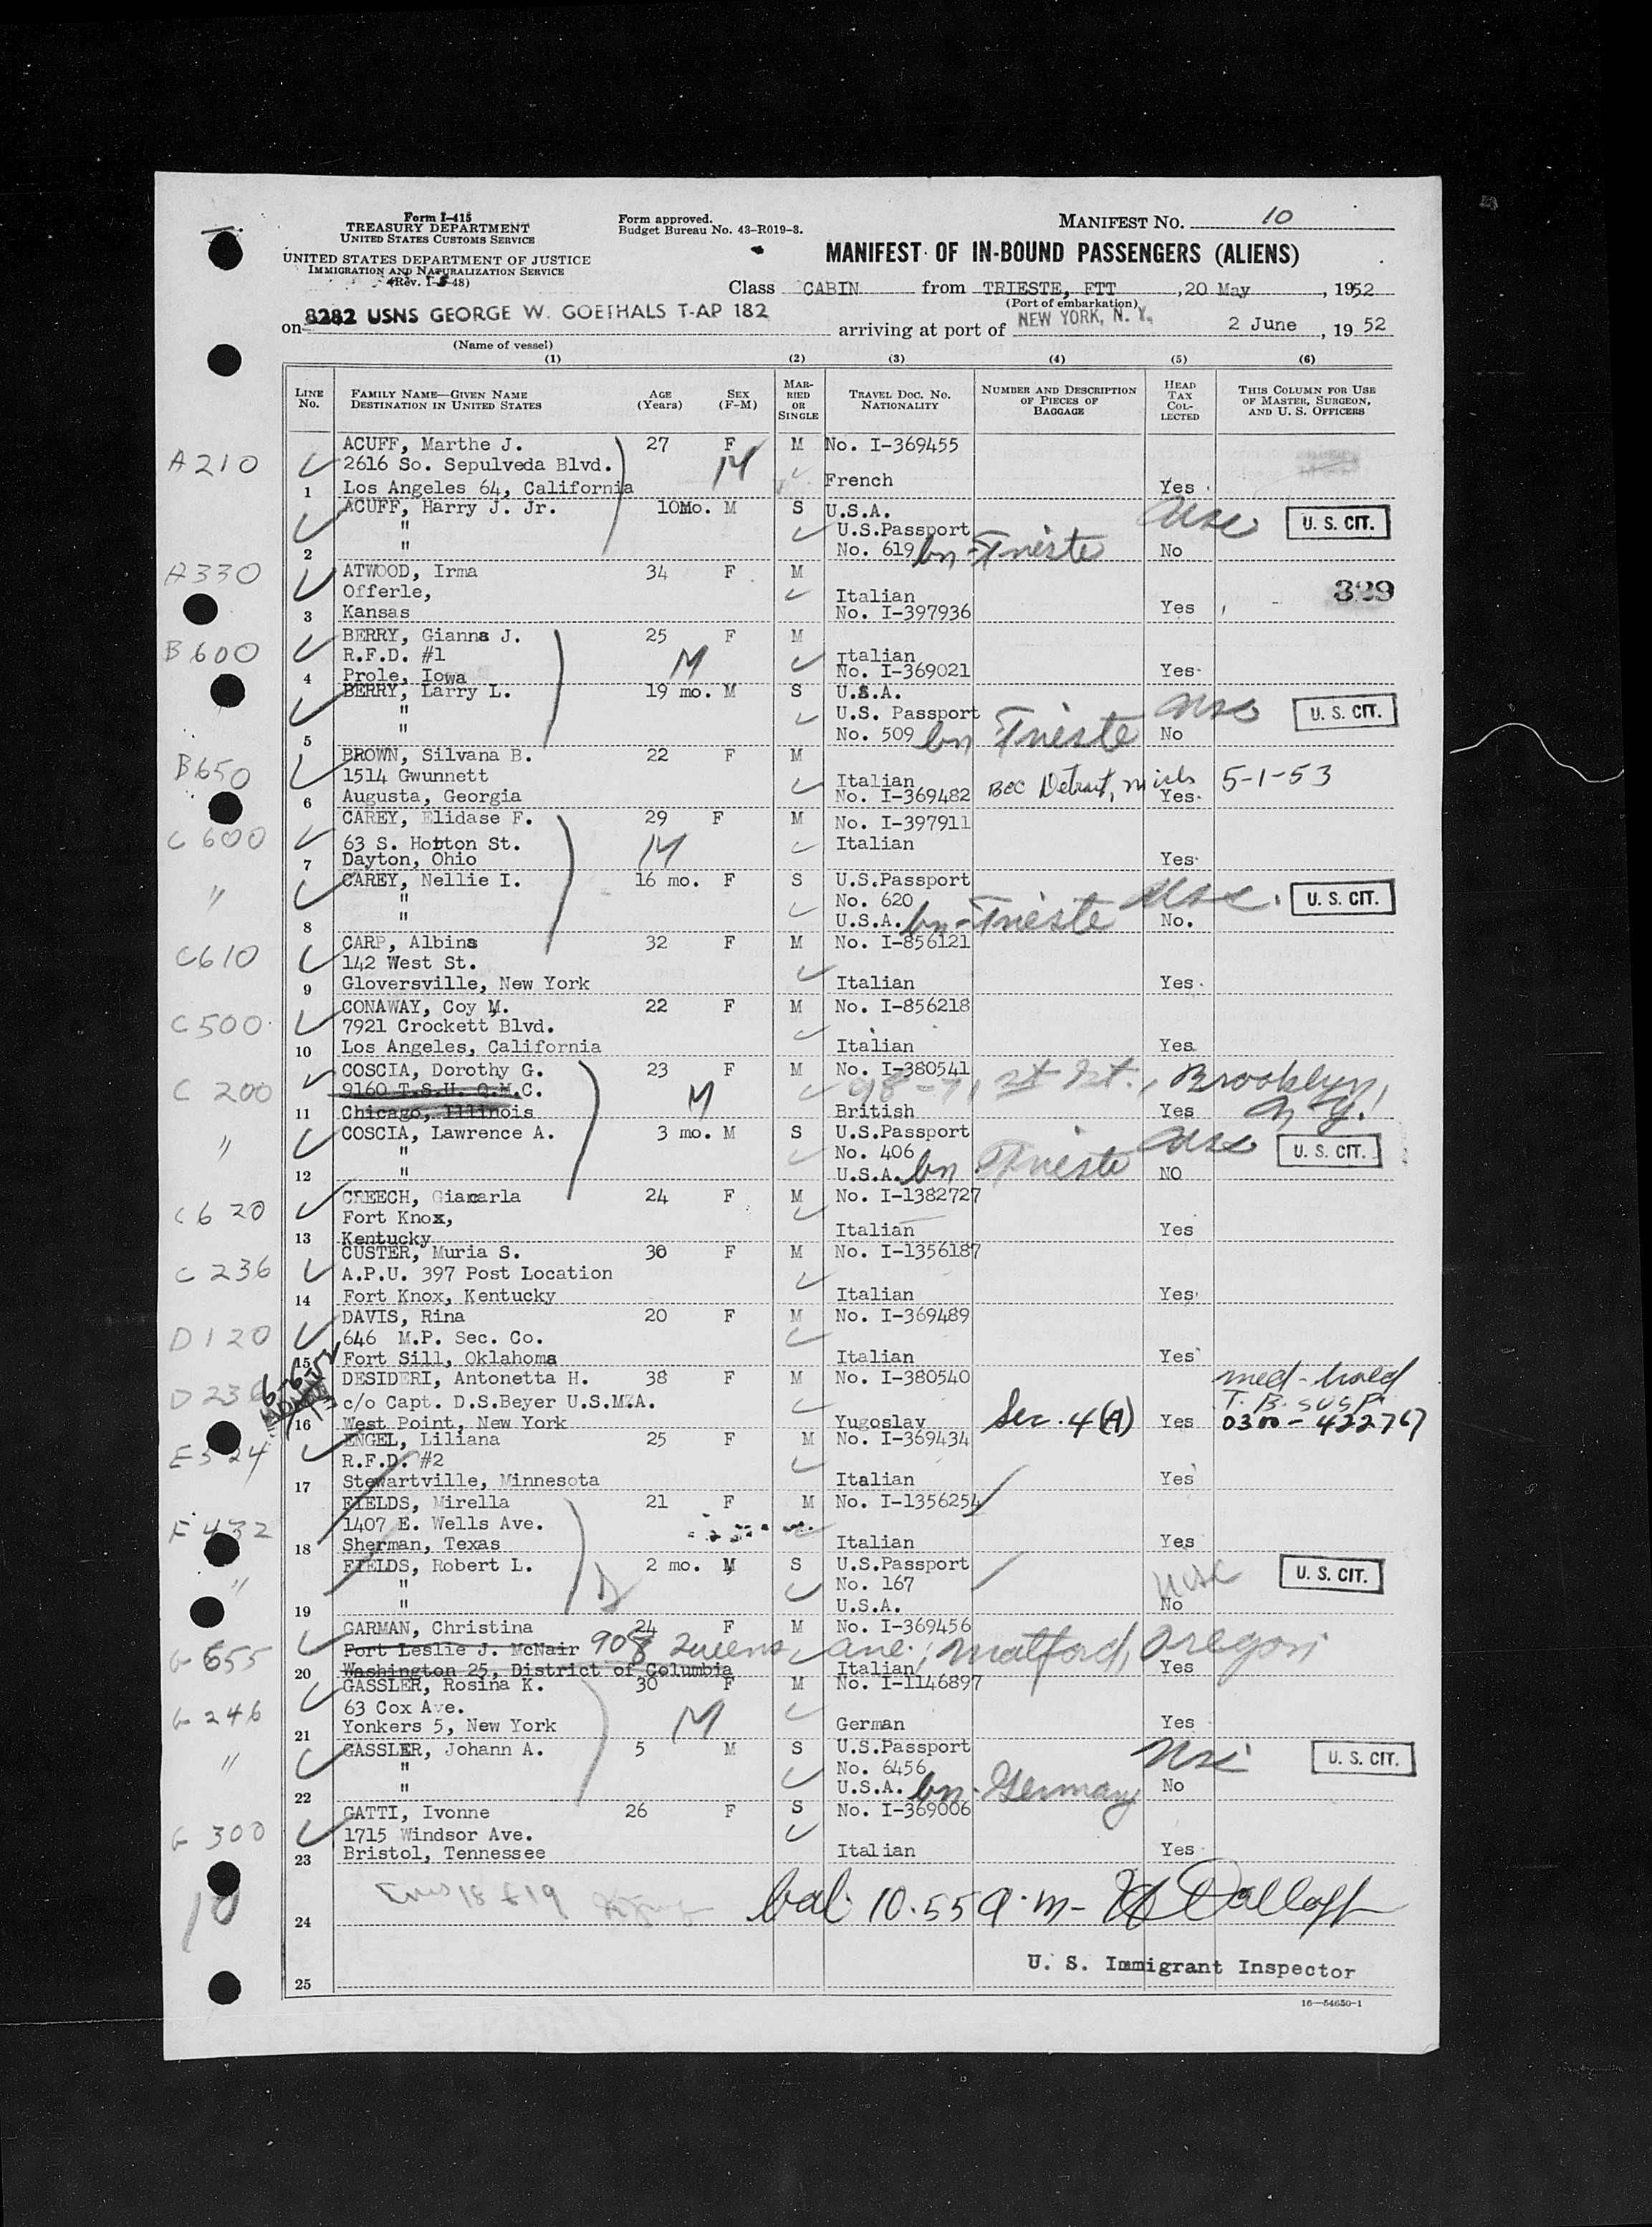 Form I-415
TREASURY DEPARTMENT
UNITED STATES CUSTOMS SERVICE
UNITED STATES DEPARTMENT OF JUSTICE
IMMIGRATION AND NATURALIZATION SERVICE
Form approved.
Budget Bureau No. 43-R019-3.
MANIFEST NO. 10
MANIFEST OF IN-BOUND PASSENGERS (ALIENS)
Class CABIN from TRIESTE, FTT ,20 May , 1952
(Port of embarkation)
on 8282 USNS GEORGE W. GOETHALS T-AP 182 arriving at port of NEW YORK, N. Y. 2 June , 19 52
(Name of vessel)
(1) (2) (3) (4) (5) (6)
LINE No. FAMILY NAME—GIVEN NAME DESTINATION IN UNITED STATES AGE (Years) SEX (F-M) MARRIED OR SINGLE TRAVEL DOC. NO. NATIONALITY NUMBER AND DESCRIPTION OF PIECES OF BAGGAGE HEAD TAX COLLECTED THIS COLUMN FOR USE OF MASTER, SURGEON, AND U. S. OFFICERS
ACUFF, Marthe J. 27 F M No. I-369455
A210 2616 So. Sepulveda Blvd. M
1 Los Angeles 64, California French Yes
ACUFF, Harry J. Jr. 10Mo. M S U.S.A.
" U.S.Passport USC U. S. CIT.
2 " No. 619 bn-Trieste No
A330 ATWOOD, Irma 34 F M
Offerle, Italian 329
3 Kansas No. I-397936 Yes
BERRY, Gianna J. 25 F M
B600 R.F.D. #1 M Italian
4 Prole, Iowa No. I-369021 Yes
BERRY, Larry L. 19 mo. M S U.S.A.
" U.S. Passport USC U. S. CIT.
5 " No. 509 bn Trieste No
BROWN, Silvana B. 22 F M
B650 1514 Gwunnett Italian BCC Detroit, Mich 5-1-53
6 Augusta, Georgia No. I-369482 Yes
CAREY, Elidase F. 29 F M No. I-397911
C600 63 S. Horton St. M Italian
7 Dayton, Ohio Yes
CAREY, Nellie I. 16 mo. F S U.S.Passport
" " No. 620 USC. U. S. CIT.
8 " U.S.A. bn-Trieste No.
CARP, Albina 32 F M No. I-856121
C610 142 West St.
9 Gloversville, New York Italian Yes
CONAWAY, Coy M. 22 F M No. I-856218
C500 7921 Crockett Blvd.
10 Los Angeles, California Italian Yes
COSCIA, Dorothy G. 23 F M No. I-380541
C 200 9160 T.S.U. Q.M.C. M 98-71 st St., Brooklyn,
11 Chicago, Illinois British Yes N.Y.
COSCIA, Lawrence A. 3 mo. M S U.S.Passport
" " No. 406 USC U. S. CIT.
12 " U.S.A. bn Trieste NO
CREECH, Giancarla 24 F M No. I-1382727
C620 Fort Knox,
13 Kentucky Italian Yes
CUSTER, Muria S. 30 F M No. I-1356187
C 236 A.P.U. 397 Post Location
14 Fort Knox, Kentucky Italian Yes
DAVIS, Rina 20 F M No. I-369489
D120 646 M.P. Sec. Co.
15 Fort Sill, Oklahoma Italian Yes
DESIDERI, Antonetta H. 38 F M No. I-380540 med-hold
c/o Capt. D.S.Beyer U.S.M.A. T. B. susp.
16 West Point, New York Yugoslav Sec. 4(A) Yes 0300-422767
ENGEL, Liliana 25 F M No. I-369434
E524 R.F.D. #2
17 Stewartville, Minnesota Italian Yes
FIELDS, Mirella 21 F M No. I-1356254
F432 1407 E. Wells Ave.
18 Sherman, Texas Italian Yes
FIELDS, Robert L. 2 mo. M S U.S.Passport
" " No. 167 USC U. S. CIT.
19 " U.S.A. No
GARMAN, Christina 24 F M No. I-369456
G655 Fort Leslie J. McNair 908 Queens ave; Matford, Oregon
20 Washington 25, District of Columbia Italian Yes
GASSLER, Rosina K. 30 F M No. I-1146897
G246 63 Cox Ave. M
21 Yonkers 5, New York German Yes
GASSLER, Johann A. 5 M S U.S.Passport
" " No. 6456 USC U. S. CIT.
22 " U.S.A. bn-Germany No
GATTI, Ivonne 26 F S No. I-369006
G 300 1715 Windsor Ave.
23 Bristol, Tennessee Italian Yes
10 bal. 10.55 a.m-
24
U. S. Immigrant Inspector
25
16—54650-1